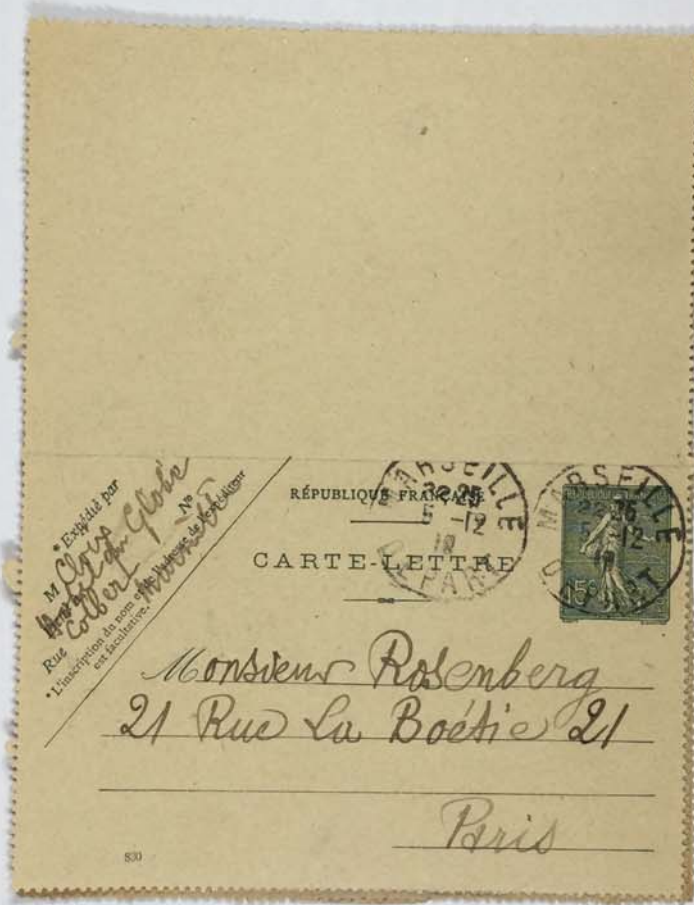 * Expédié par
M Cloix
Hotel du Globe
Rue Colbert Nº
Marseille
* L'inscription du nom et de l'adresse de l'expéditeur
est facultative.
RÉPUBLIQUE FRANÇAISE
CARTE-LETTRE
MARSEILLE
22 25
5 -12
DEPART
MARSEILLE
22 25
5 -12
DEPART
15c
Monsieur Rosenberg
21 Rue La Boétie 21
Paris
830